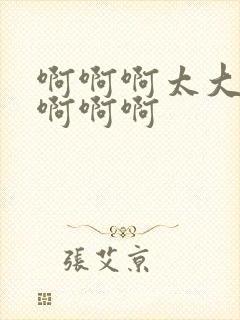 啊啊啊太大
啊啊啊
張艾京